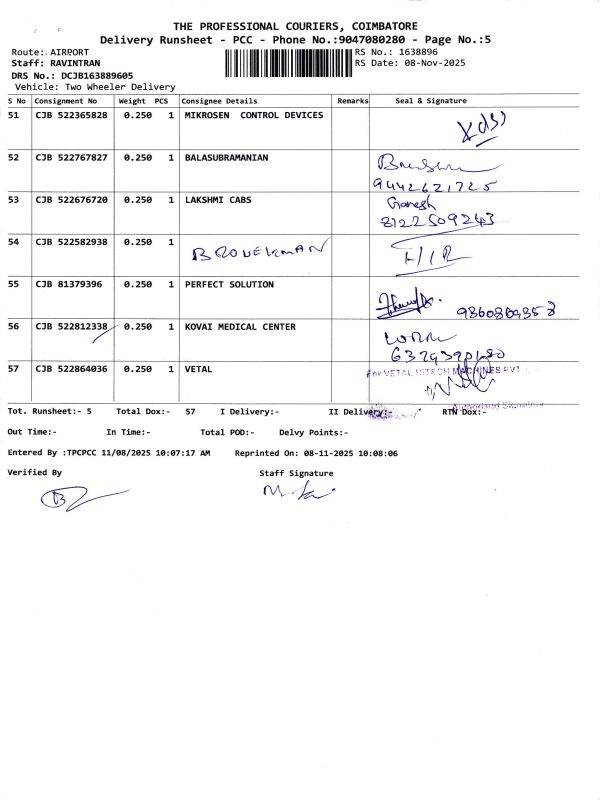 THE PROFESSIONAL COURIERS, COIMBATORE
Delivery Runsheet - PCC - Phone No.:9047080280 - Page No.:5
Route: AIRPORT
RS No.: 1638896
Staff: RAVINTRAN
RS Date: 08-Nov-2025
DRS No.: DCJB163889605
Vehicle: Two Wheeler Delivery
S No Consignment No Weight PCS Consignee Details Remarks Seal & Signature
51 CJB 522365828 0.250 1 MIKROSEN CONTROL DEVICES
52 CJB 522767827 0.250 1 BALASUBRAMANIAN
9442621725
53 CJB 522676720 0.250 1 LAKSHMI CABS Ganesh
8122509243
54 CJB 522582938 0.250 1
55 CJB 81379396 0.250 1 PERFECT SOLUTION
56 CJB 522812338 0.250 1 KOVAI MEDICAL CENTER
57 CJB 522864036 0.250 1 VETAL For VETAL HITECH MACHINES PVT
Authorised Signatory
Tot. Runsheet:- 5 Total Dox:- 57 I Delivery:- II Delivery:- RTN Dox:-
Out Time:- In Time:- Total POD:- Delvy Points:-
Entered By :TPCPCC 11/08/2025 10:07:17 AM Reprinted On: 08-11-2025 10:08:06
Verified By Staff Signature